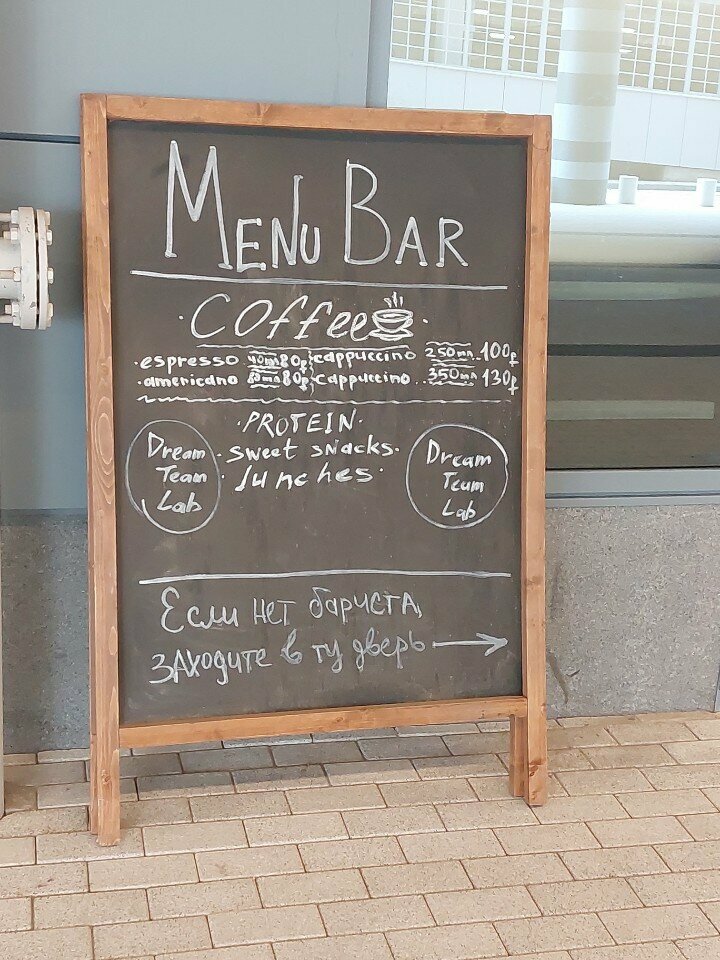 MENU BAR
· Coffee ·
· espresso 40мл 80р cappuccino 250мл..100р
· americano 80р cappuccino .. 350мл 130р
· PROTEIN ·
· sweet snacks ·
lunches ·
Dream
Team
Lab
Dream
Team
Lab
Если нет бариста,
заходите в ту дверь →